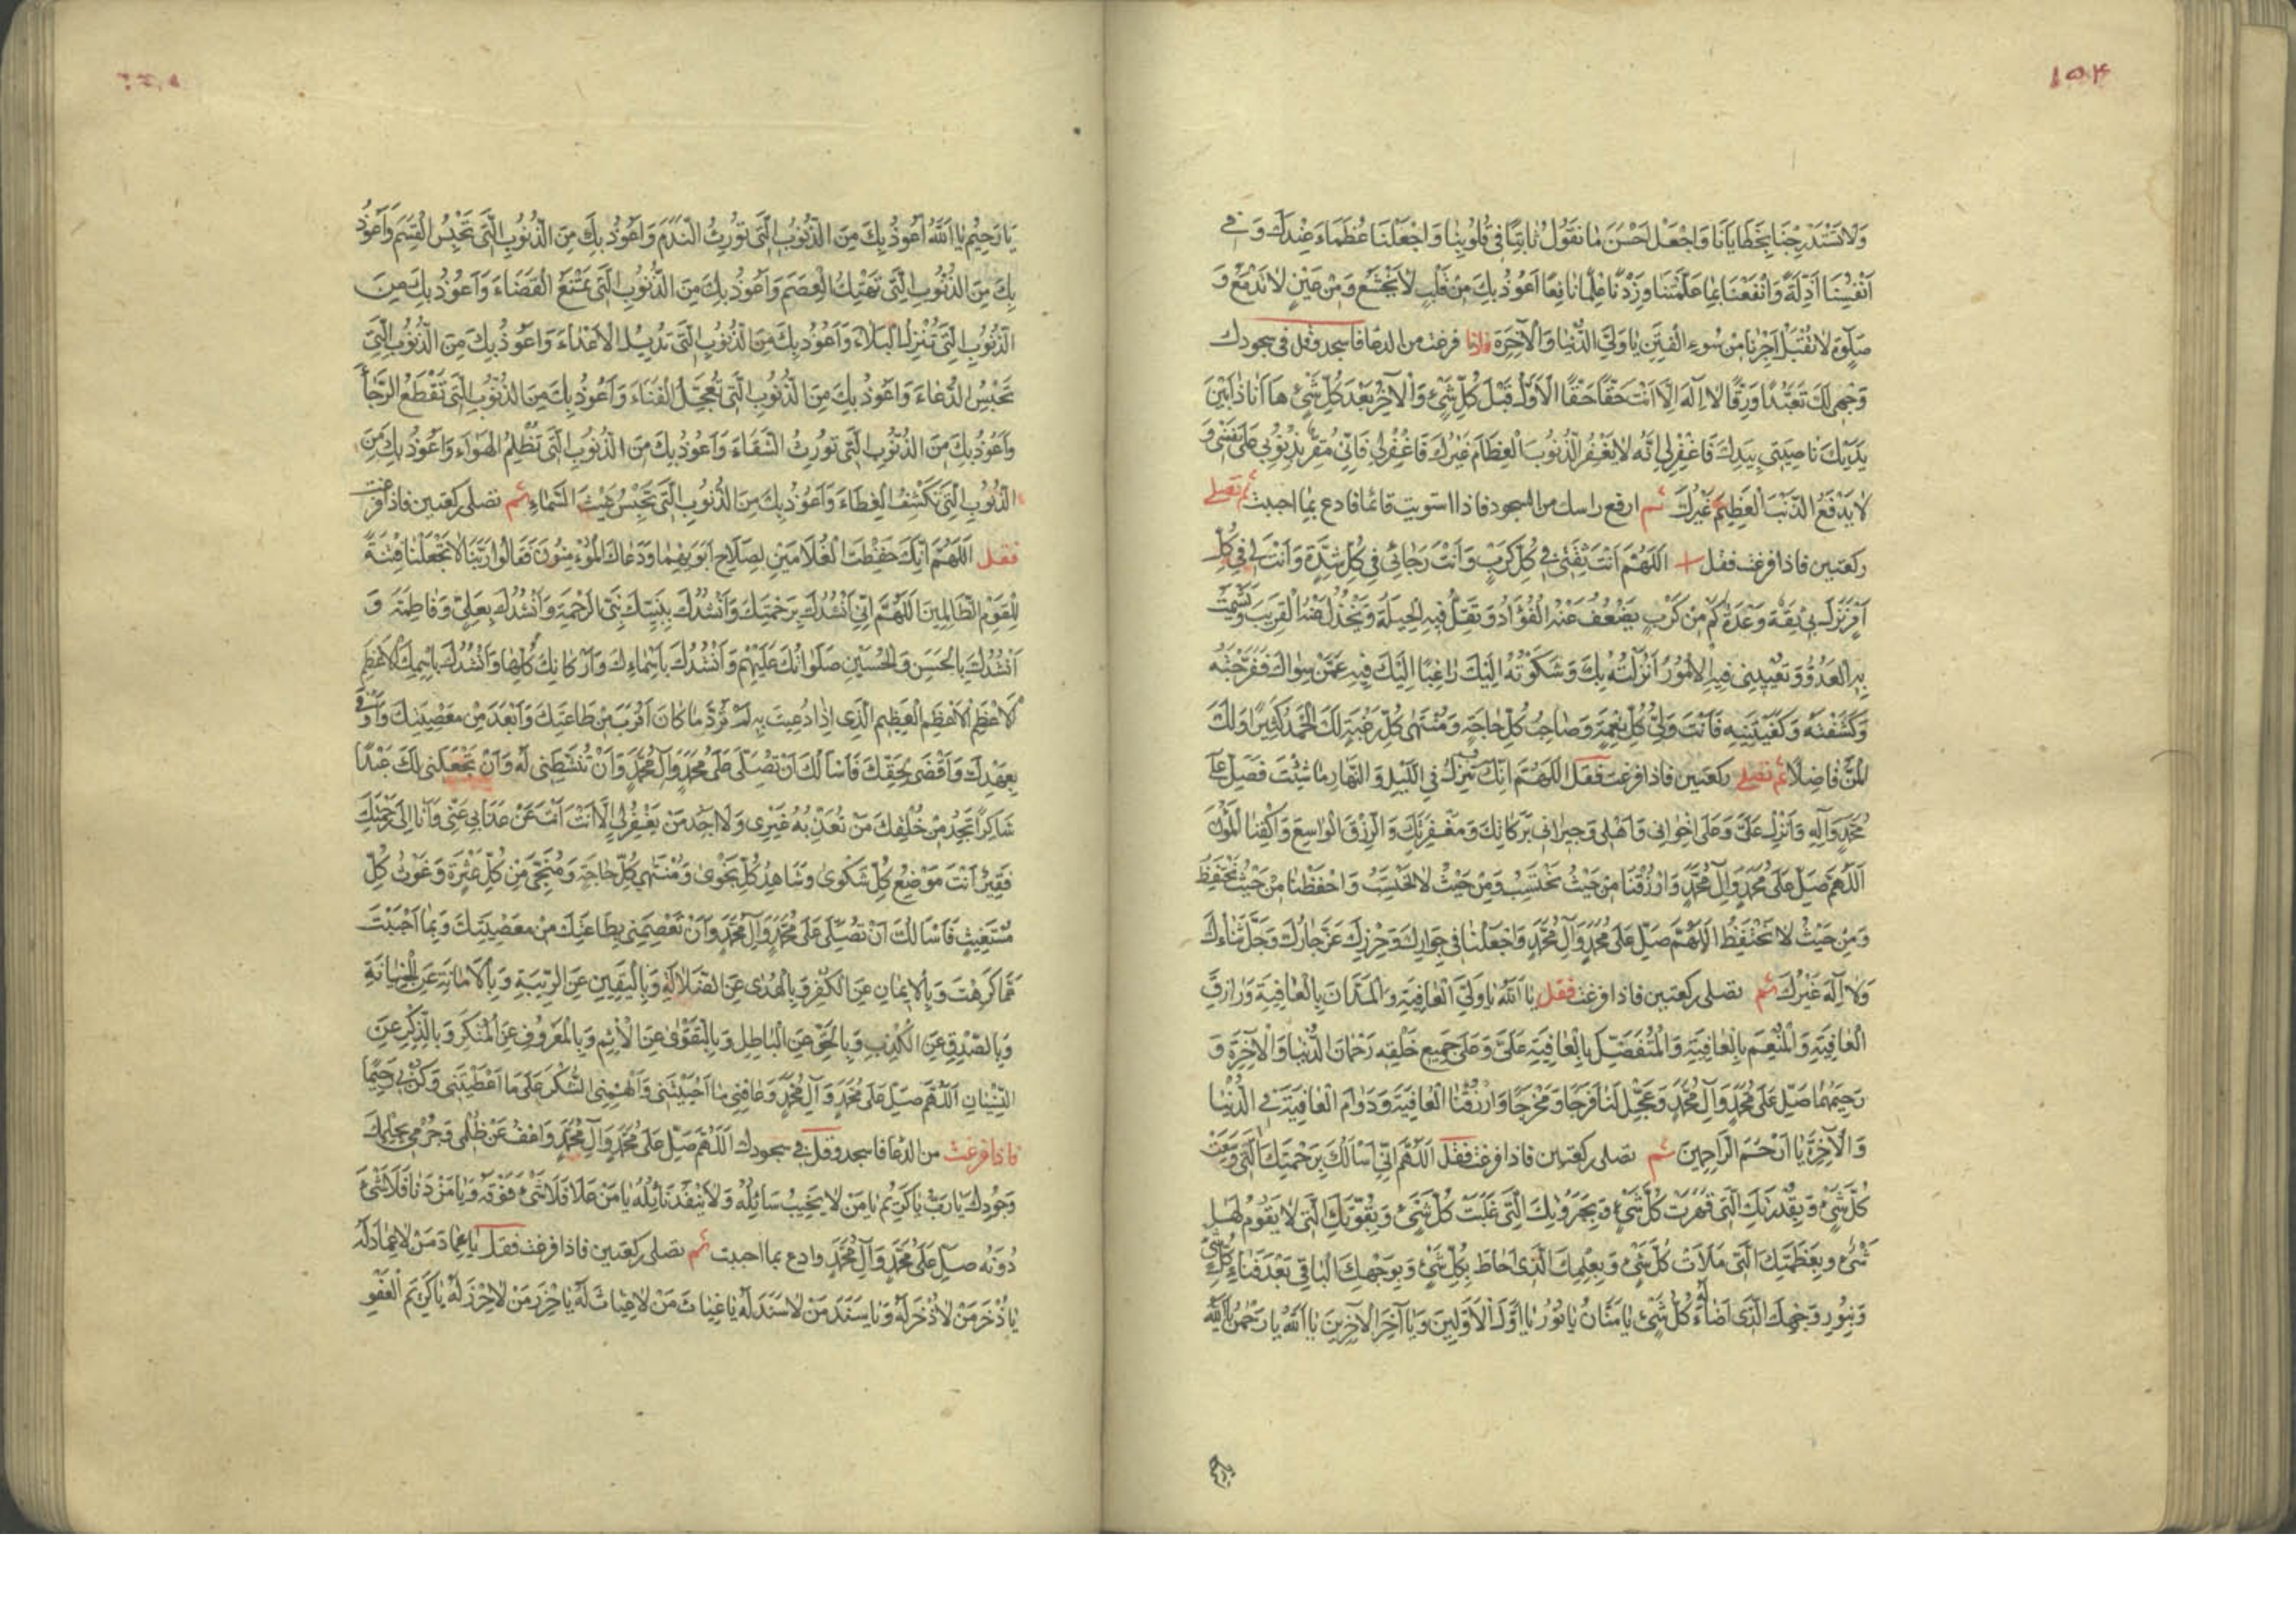 ١٥٤
وَلاتَسْتَدْرِجْنَا بِخَطَايَانَا وَاجْعَلْ اَحْسَنَ مَا نَقُولُ ثَابِتًا فِي قُلُوبِنَا وَاجْعَلْنَا عُظَمَاءَ عِنْدَكَ وَ فِي
اَنْفُسِنَا اَذِلَّةً وَانْفَعْنَا بِمَا عَلَّمْتَنَا وَزِدْنَا عِلْمًا نَافِعًا اَعُوذُ بِكَ مِنْ قَلْبٍ لَا يَخْشَعُ وَمِنْ عَيْنٍ لَا تَدْمَعُ وَ
صَلٰوةٍ لَا تُقْبَلُ اَجِرْنَا مِنْ سُوءِ الْفِتَنِ يَا وَلِيَّ الدُّنْيَا وَالْآخِرَةِ فاذا فرغت من الدعا فاسجد وقل في سجودك
وَجْهِي لَكَ تَعَبُّدًا وَرِقًّا لَا اِلٰهَ اِلَّا اَنْتَ حَقًّا حَقًّا الْاَوَّلُ قَبْلَ كُلِّ شَيْءٍ وَالْآخِرُ بَعْدَ كُلِّ شَيْءٍ هَا اَنَا ذَا بَيْنَ
يَدَيْكَ نَاصِيَتِي بِيَدِكَ فَاغْفِرْ لِي اِنَّهُ لَا يَغْفِرُ الذُّنُوبَ الْعِظَامَ غَيْرُكَ فَاغْفِرْ لِي فَاِنِّي مُقِرٌّ بِذُنُوبِي عَلَى نَفْسِي وَ
لَا يَدْفَعُ الذَّنْبَ الْعَظِيمَ غَيْرُكَ ثم ارفع راسك من السجود فاذا استويت قائما فادع بما احببت ثم تصلي
ركعتين فاذا فرغت فقل اَللّٰهُمَّ اَنْتَ ثِقَتِي فِي كُلِّ كَرْبٍ وَاَنْتَ رَجَائِي فِي كُلِّ شِدَّةٍ وَاَنْتَ لِي فِي كُلِّ
اَمْرٍ نَزَلَ بِي ثِقَةٌ وَعُدَّةٌ كَمْ مِنْ كَرْبٍ يَضْعُفُ عَنْهُ الْفُؤَادُ وَتَقِلُّ فِيهِ الْحِيلَةُ وَيَخْذُلُ عَنْهُ الْقَرِيبُ وَيَشْمَتُ
بِهِ الْعَدُوُّ وَتُعْيِينِي فِيهِ الْاُمُورُ اَنْزَلْتُهُ بِكَ وَشَكَوْتُهُ اِلَيْكَ رَاغِبًا اِلَيْكَ فِيهِ عَمَّنْ سِوَاكَ فَفَرَّجْتَهُ
وَكَشَفْتَهُ وَكَفَيْتَنِيهِ فَاَنْتَ وَلِيُّ كُلِّ نِعْمَةٍ وَصَاحِبُ كُلِّ حَاجَةٍ وَمُنْتَهٰى كُلِّ رَغْبَةٍ لَكَ الْحَمْدُ كَثِيرًا وَلَكَ
الْمَنُّ فَاضِلًا ثم تصلي ركعتين فاذا فرغت فقل اَللّٰهُمَّ اِنَّكَ تُنْزِلُ فِي اللَّيْلِ وَالنَّهَارِ مَا شِئْتَ فَصَلِّ عَلَى
مُحَمَّدٍ وَآلِهِ وَاَنْزِلْ عَلَيَّ وَعَلَى اِخْوَانِي وَاَهْلِي وَجِيرَانِي بَرَكَاتِكَ وَمَغْفِرَتَكَ وَالرِّزْقَ الْوَاسِعَ وَاكْفِنَا الْمُؤَنَ
اَللّٰهُمَّ صَلِّ عَلَى مُحَمَّدٍ وَآلِ مُحَمَّدٍ وَارْزُقْنَا مِنْ حَيْثُ نَحْتَسِبُ وَمِنْ حَيْثُ لَا نَحْتَسِبُ وَاحْفَظْنَا مِنْ حَيْثُ نَحْتَفِظُ
وَمِنْ حَيْثُ لَا نَحْتَفِظُ اَللّٰهُمَّ صَلِّ عَلَى مُحَمَّدٍ وَآلِ مُحَمَّدٍ وَاجْعَلْنَا فِي جِوَارِكَ وَحِرْزِكَ عَزَّ جَارُكَ وَجَلَّ ثَنَاؤُكَ
وَلَا اِلٰهَ غَيْرُكَ ثم تصلي ركعتين فاذا فرغت فقل يَا اَللّٰهُ يَا وَلِيَّ الْعَافِيَةِ وَالْمَنَّانَ بِالْعَافِيَةِ وَرَازِقَ
الْعَافِيَةِ وَالْمُنْعِمَ بِالْعَافِيَةِ وَالْمُتَفَضِّلَ بِالْعَافِيَةِ عَلَيَّ وَعَلَى جَمِيعِ خَلْقِهِ رَحْمَانَ الدُّنْيَا وَالْآخِرَةِ وَ
رَحِيمَهُمَا صَلِّ عَلَى مُحَمَّدٍ وَآلِ مُحَمَّدٍ وَعَجِّلْ لَنَا فَرَجًا وَمَخْرَجًا وَارْزُقْنَا الْعَافِيَةَ وَدَوَامَ الْعَافِيَةِ فِي الدُّنْيَا
وَالْآخِرَةِ يَا اَرْحَمَ الرَّاحِمِينَ ثم تصلي ركعتين فاذا فرغت فقل اَللّٰهُمَّ اِنِّي اَسْاَلُكَ بِرَحْمَتِكَ الَّتِي وَسِعَتْ
كُلَّ شَيْءٍ وَبِقُدْرَتِكَ الَّتِي قَهَرَتْ كُلَّ شَيْءٍ وَبِجَبَرُوتِكَ الَّتِي غَلَبَتْ كُلَّ شَيْءٍ وَبِقُوَّتِكَ الَّتِي لَا يَقُومُ لَهَا
شَيْءٌ وَبِعَظَمَتِكَ الَّتِي مَلَأَتْ كُلَّ شَيْءٍ وَبِعِلْمِكَ الَّذِي اَحَاطَ بِكُلِّ شَيْءٍ وَبِوَجْهِكَ الْبَاقِي بَعْدَ فَنَاءِ كُلِّ شَيْءٍ
وَبِنُورِ وَجْهِكَ الَّذِي اَضَاءَ لَهُ كُلُّ شَيْءٍ يَا مَنَّانُ يَا نُورُ يَا اَوَّلَ الْاَوَّلِينَ وَيَا آخِرَ الْآخِرِينَ يَا اَللّٰهُ يَا رَحْمٰنُ يَا اَللّٰهُ
يا رحيم
يَا رَحِيمُ يَا اَللّٰهُ اَعُوذُ بِكَ مِنَ الذُّنُوبِ الَّتِي تُورِثُ النَّدَمَ وَاَعُوذُ بِكَ مِنَ الذُّنُوبِ الَّتِي تَحْبِسُ الْقِسَمَ وَاَعُوذُ
بِكَ مِنَ الذُّنُوبِ الَّتِي تَهْتِكُ الْعِصَمَ وَاَعُوذُ بِكَ مِنَ الذُّنُوبِ الَّتِي تَمْنَعُ الْقَضَاءَ وَاَعُوذُ بِكَ مِنَ
الذُّنُوبِ الَّتِي تُنْزِلُ الْبَلَاءَ وَاَعُوذُ بِكَ مِنَ الذُّنُوبِ الَّتِي تُدِيلُ الْاَعْدَاءَ وَاَعُوذُ بِكَ مِنَ الذُّنُوبِ الَّتِي
تَحْبِسُ الدُّعَاءَ وَاَعُوذُ بِكَ مِنَ الذُّنُوبِ الَّتِي تُعَجِّلُ الْفَنَاءَ وَاَعُوذُ بِكَ مِنَ الذُّنُوبِ الَّتِي تَقْطَعُ الرَّجَاءَ
وَاَعُوذُ بِكَ مِنَ الذُّنُوبِ الَّتِي تُورِثُ الشَّقَاءَ وَاَعُوذُ بِكَ مِنَ الذُّنُوبِ الَّتِي تُظْلِمُ الْهَوَاءَ وَاَعُوذُ بِكَ مِنَ
الذُّنُوبِ الَّتِي تَكْشِفُ الْغِطَاءَ وَاَعُوذُ بِكَ مِنَ الذُّنُوبِ الَّتِي تَحْبِسُ غَيْثَ السَّمَاءِ ثم تصلي ركعتين فاذا فرغت
فقل اَللّٰهُمَّ اِنَّكَ حَفِظْتَ الْغُلَامَيْنِ لِصَلَاحِ اَبَوَيْهِمَا وَدَعَاكَ الْمُؤْمِنُونَ فَقَالُوا رَبَّنَا لَا تَجْعَلْنَا فِتْنَةً
لِلْقَوْمِ الظَّالِمِينَ اَللّٰهُمَّ اِنِّي اَنْشُدُكَ بِرَحْمَتِكَ وَاَنْشُدُكَ بِنَبِيِّكَ نَبِيِّ الرَّحْمَةِ وَاَنْشُدُكَ بِعَلِيٍّ وَفَاطِمَةَ وَ
اَنْشُدُكَ بِالْحَسَنِ وَالْحُسَيْنِ صَلَوَاتُكَ عَلَيْهِمْ وَاَنْشُدُكَ بِاَسْمَاءِكَ وَاَرْكَانِكَ كُلِّهَا وَاَنْشُدُكَ بِاسْمِكَ الْاَعْظَمِ
الْاَعْظَمِ الْاَعْظَمِ الْعَظِيمِ الَّذِي اِذَا دُعِيتَ بِهِ لَمْ تَرُدَّ مَا كَانَ اَقْرَبَ مِنْ طَاعَتِكَ وَاَبْعَدَ مِنْ مَعْصِيَتِكَ وَاَوْفٰى
بِعَهْدِكَ وَاَقْضٰى بِحَقِّكَ فَاَسْاَلُكَ اَنْ تُصَلِّيَ عَلَى مُحَمَّدٍ وَآلِ مُحَمَّدٍ وَاَنْ تُنَشِّطَنِي لَهُ وَاَنْ تَجْعَلَنِي لَكَ عَبْدًا
شَاكِرًا تَجِدُ مِنْ خَلْقِكَ مَنْ تُعَذِّبُهُ غَيْرِي وَلَا اَجِدُ مَنْ يَغْفِرُ لِي اِلَّا اَنْتَ اَنْتَ عَنْ عَذَابِي غَنِيٌّ وَاَنَا اِلَى رَحْمَتِكَ
فَقِيرٌ اَنْتَ مَوْضِعُ كُلِّ شَكْوٰى وَشَاهِدُ كُلِّ نَجْوٰى وَمُنْتَهٰى كُلِّ حَاجَةٍ وَمُنْجِي مِنْ كُلِّ عَثْرَةٍ وَغَوْثُ كُلِّ
مُسْتَغِيثٍ فَاَسْاَلُكَ اَنْ تُصَلِّيَ عَلَى مُحَمَّدٍ وَآلِ مُحَمَّدٍ وَاَنْ تَعْصِمَنِي بِطَاعَتِكَ مِنْ مَعْصِيَتِكَ وَبِمَا اَحْبَبْتَ
عَمَّا كَرِهْتَ وَبِالْاِيمَانِ عَنِ الْكُفْرِ وَبِالْهُدٰى عَنِ الضَّلَالَةِ وَبِالْيَقِينِ عَنِ الرِّيبَةِ وَبِالْاَمَانَةِ عَنِ الْخِيَانَةِ
وَبِالصِّدْقِ عَنِ الْكَذِبِ وَبِالْحَقِّ عَنِ الْبَاطِلِ وَبِالتَّقْوٰى عَنِ الْاِثْمِ وَبِالْمَعْرُوفِ عَنِ الْمُنْكَرِ وَبِالذِّكْرِ عَنِ
النِّسْيَانِ اَللّٰهُمَّ صَلِّ عَلَى مُحَمَّدٍ وَآلِ مُحَمَّدٍ وَعَافِنِي مَا اَحْيَيْتَنِي وَاَلْهِمْنِي الشُّكْرَ عَلَى مَا اَعْطَيْتَنِي وَكُنْ بِي رَحِيمًا
فاذا فرغت من الدعا فاسجد وقل في سجودك اَللّٰهُمَّ صَلِّ عَلَى مُحَمَّدٍ وَآلِ مُحَمَّدٍ وَاعْفُ عَنْ ظُلْمِي وَجُرْمِي بِحِلْمِكَ
وَجُودِكَ يَا رَبِّ يَا كَرِيمُ يَا مَنْ لَا يَخِيبُ سَائِلُهُ وَلَا يَنْفَدُ نَائِلُهُ يَا مَنْ عَلَا فَلَا شَيْءَ فَوْقَهُ وَيَا مَنْ دَنَا فَلَا شَيْءَ
دُونَهُ صَلِّ عَلَى مُحَمَّدٍ وَآلِ مُحَمَّدٍ وادع بما احببت ثم تصلي ركعتين فاذا فرغت فقل يَا عِمَادَ مَنْ لَا عِمَادَ لَهُ
يَا ذُخْرَ مَنْ لَا ذُخْرَ لَهُ وَيَا سَنَدَ مَنْ لَا سَنَدَ لَهُ يَا غِيَاثَ مَنْ لَا غِيَاثَ لَهُ يَا حِرْزَ مَنْ لَا حِرْزَ لَهُ يَا كَرِيمَ الْعَفْوِ